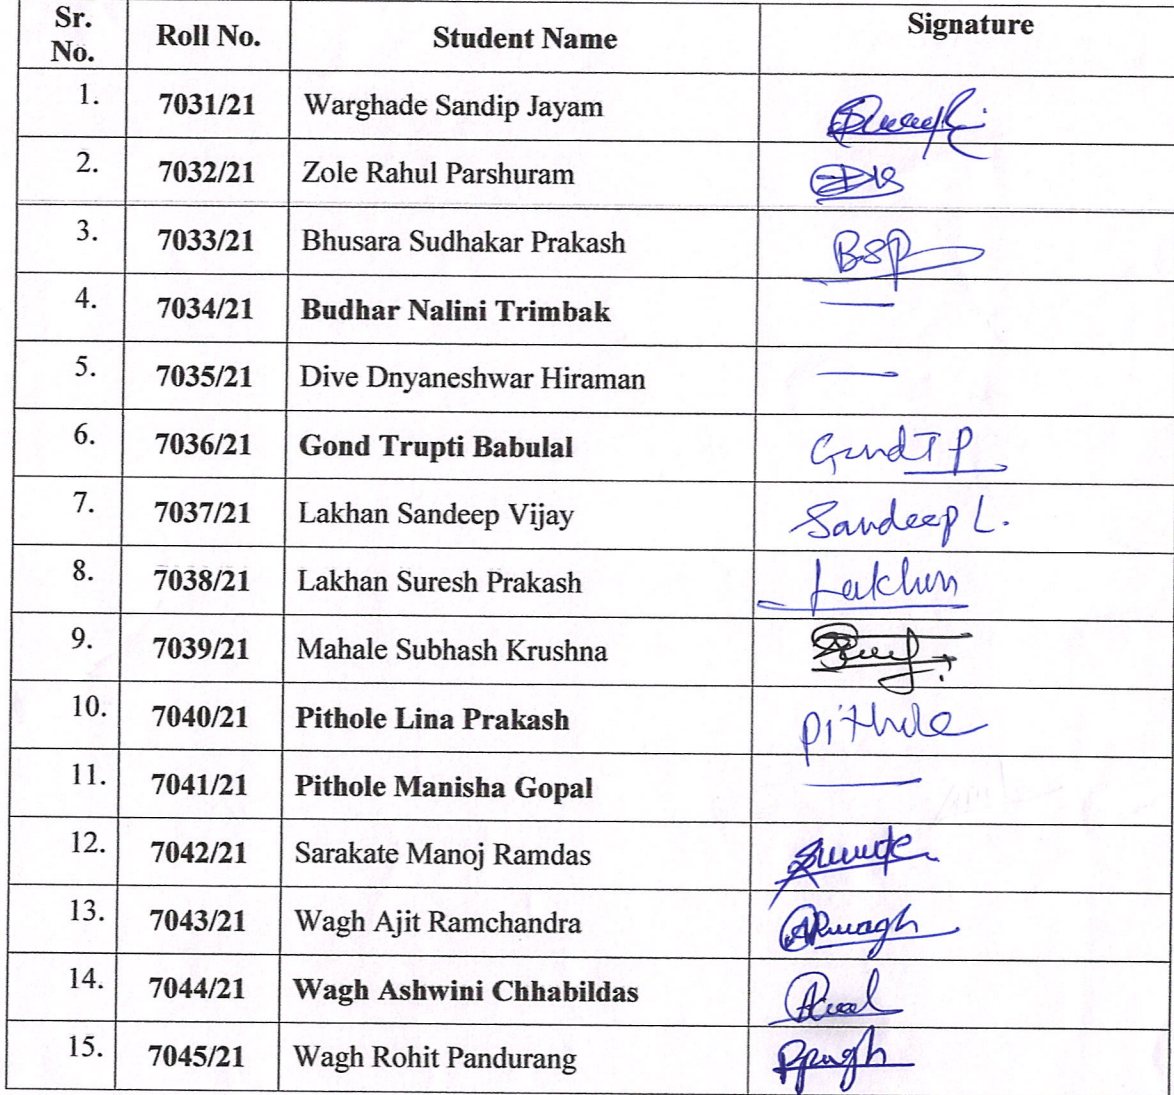 Sr. No. Roll No. Student Name Signature
1. 7031/21 Warghade Sandip Jayam
2. 7032/21 Zole Rahul Parshuram
3. 7033/21 Bhusara Sudhakar Prakash BSP
4. 7034/21 Budhar Nalini Trimbak —
5. 7035/21 Dive Dnyaneshwar Hiraman —
6. 7036/21 Gond Trupti Babulal Gond T P
7. 7037/21 Lakhan Sandeep Vijay Sandeep L.
8. 7038/21 Lakhan Suresh Prakash Lakhan
9. 7039/21 Mahale Subhash Krushna
10. 7040/21 Pithole Lina Prakash pithole
11. 7041/21 Pithole Manisha Gopal —
12. 7042/21 Sarakate Manoj Ramdas
13. 7043/21 Wagh Ajit Ramchandra ARwagh
14. 7044/21 Wagh Ashwini Chhabildas
15. 7045/21 Wagh Rohit Pandurang